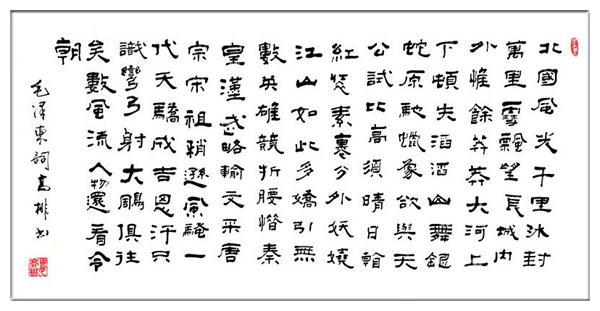 北國風光千里冰封
萬里雪飄望長城內
外惟餘莽莽大河上
下頓失滔滔山舞銀
蛇原馳蠟象欲與天
公試比高須晴日
紅裝素裹分外妖嬈
江山如此多嬌引無
數英雄競折腰惜秦
皇漢武略輸文采唐
宗宋祖稍遜風騷一
代天驕成吉思汗只
識彎弓射大鵰俱往
矣數風流人物還看今
朝
毛泽東詞高排书